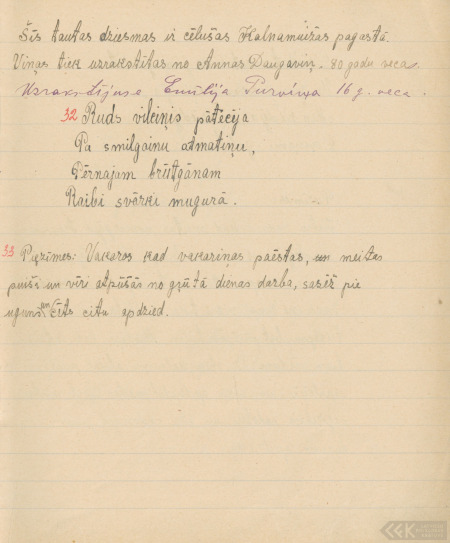 Šīs tautas dziesmas ir cēlušas Kalnamuižas pagastā.
Viņas tiek uzrakstītas no Annas Daugaviņ. 80 gadu veca
Uzrakstījuse Emīlija Purviņa 16 g. veca.
32 Ruds vilciņis pātecēja
Pa smilgainu atmatiņu,
Pērnajam brūtgānam
Raibi svārki mugurā.
33 Piezīmes: Vakaros kad vakariņas paēstas, un meitas
puiši un vīri atpūšās no grūtā dienas darba, sasēž pie
uguns un cits citu apdzied.